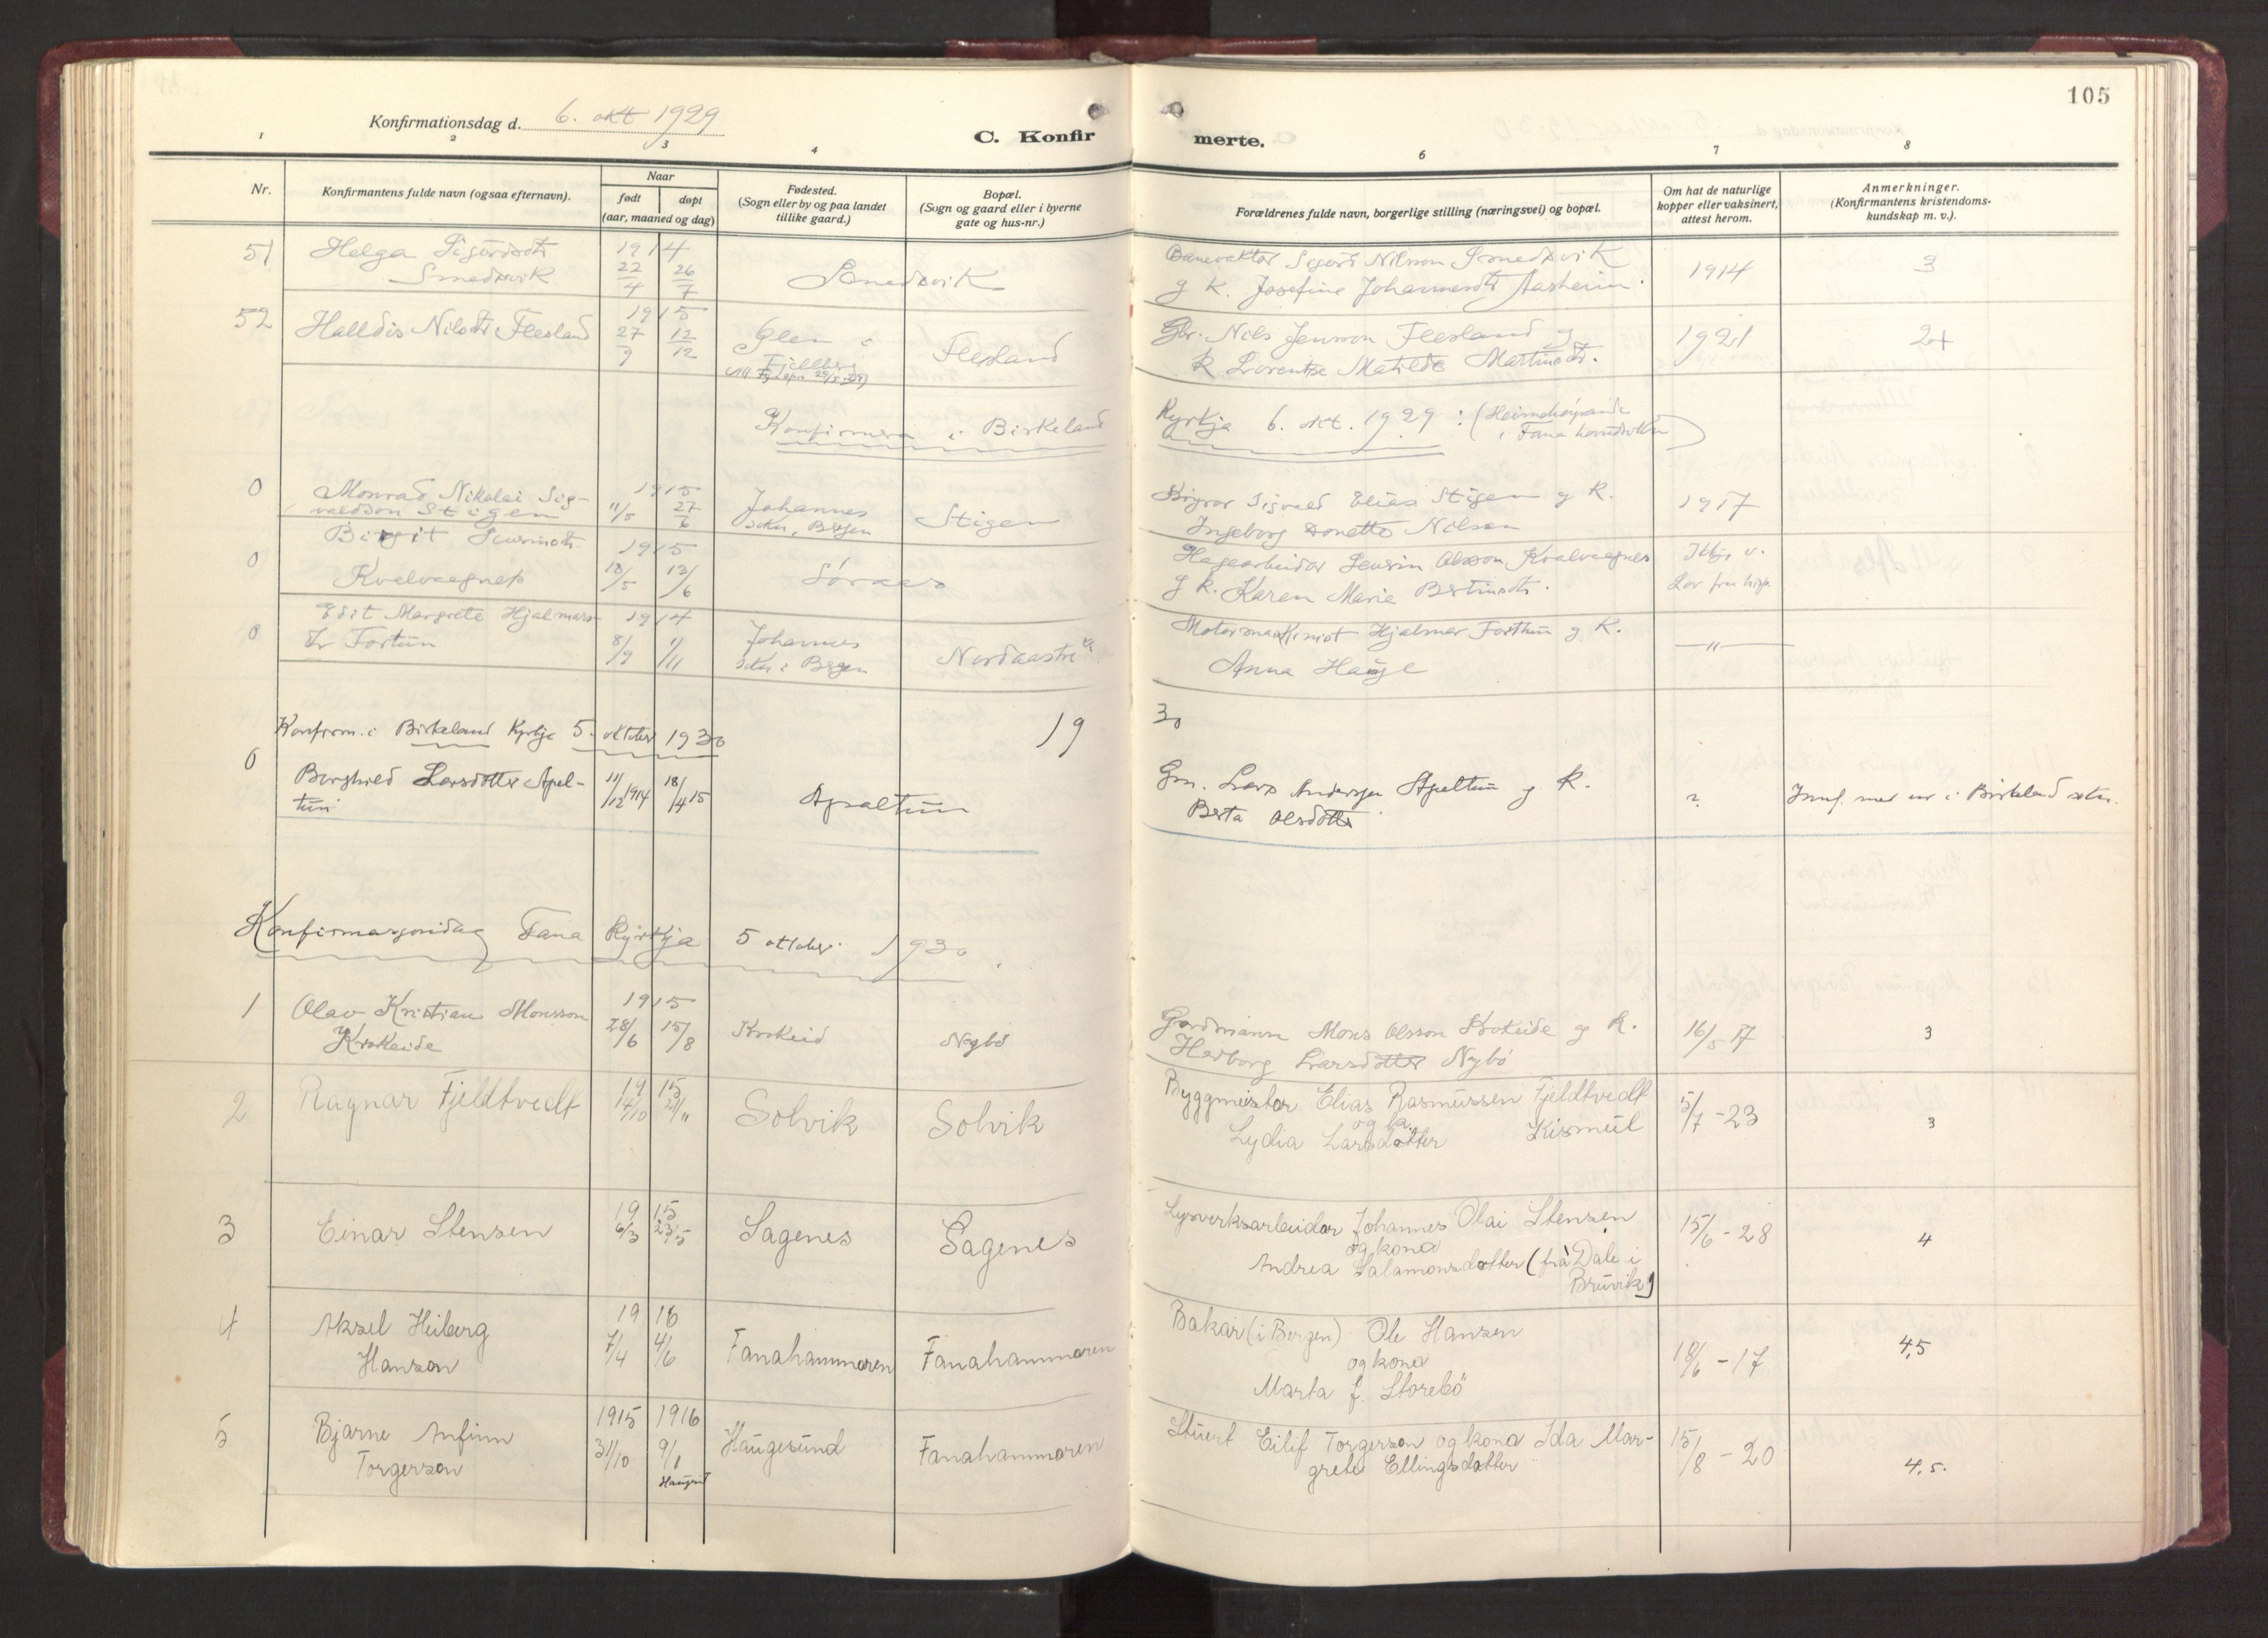 105
Konfirmationsdag d. 6. okt 1929
C. Konfir merte.
1 2 3 4 6 7 8
Nr.
Konfirmantens fulde navn (ogsaa efternavn).
Naar
født døpt
(aar, maaned og dag)
Fødested.
(Sogn eller by og paa landet
tillike gaard.)
Bopæl.
(Sogn og gaard eller i byerne
gate og hus-nr.)
Forældrenes fulde navn, borgerlige stilling (næringsvei) og bopæl.
Om hat de naturlige
kopper eller vaksinert,
attest herom.
Anmerkninger.
(Konfirmantens kristendoms-
kundskap m. v.).
51 Helga Sigurdsdtr 1914 Banevaktar Sigurd Nilsson Smedsvik
Smedsvik 22/4 26/7 Smedsvik g k. Josefine Johannesdtr Aasheim. 1914 3
52 Halldis Nilsdtr Flesland 1915 27/9 12/12 Flesland Gbr. Nils Jensson Flesland g 1921 2+
Fjellberg k Lorentse Matilde Martinsdtr.
Konfirmera i Birkeland Kyrkja 6. okt. 1929 : (Heimehøyrande
i Fana hovudsokn)
0 Monrad Nikolai Sig- 1915 Johannes Sigvald Elias Stigen g k. 1917
valdson Stigen 11/5 27/6 sokn, Bergen Stigen Ingeborg Donette Nilsen
0 Birgit Sevrinsdtr. 1915 Hagearbeidar Sevrin Olsson Kvalvaagnes
Kvalvaagnes 13/5 13/6 Søraas g k. Karen Marie Bertinsdtr.
0 Edit Margrete Hjalmars- 1914 Johannes Motormaskinist Hjalmar Forthun g k. — " —
dtr Fortun 8/9 1/11 sokn i Bergen Nordaastre Anna Hauge
Konfirm. i Birkeland Kyrkje 5. oktober 1930 19 30
0 Borghild Larsdotter Apel- 11/12 1914 18/4 15 Apaltun Gm. Lars Andersen Apeltun g k. ?
tun Berta Olsdotter Innf. med nr i Birkeland sokn.
Konfirmasjonsdag Fana Kyrkja 5 oktober 1930.
1 Olav Kristian Monsson 1915 Gardmann Mons Olsson Krokeide g k. 16/5 17 3
Krokeide 28/6 15/8 Krokeid Nybø Herborg Larsdotter Nybø
2 Ragnar Fjeldtvedt 1915 14/10 21/11 Solvik Solvik Byggmeistar Elias Rasmussen Fjeldtvedt 5/7 - 23 3
og k.
Lydia Larsdotter Kismul
3 Einar Stensen 1915 6/3 23/5 Sagenes Sagenes Lysverksarbeidar Johannes Olai Stensen 15/6 - 28 4
og kona
Andrea Salamonsdotter (frå Dale i
Bruvik)
4 Aksel Heiberg 1916 Bakar (i Bergen) Ole Hansen
Hanson 7/4 4/6 Fanahammaren Fanahammaren og kona 18/6 - 17 4,5
Marta f. Storebö
5 Bjarne Anfinn 1915 1916 Stuert Eilif Torgerson og kona Ida Mar- 15/8 - 20 4,5.
Torgerson 31/10 9/1 Haugesund Fanahammaren grete Ellingsdotter